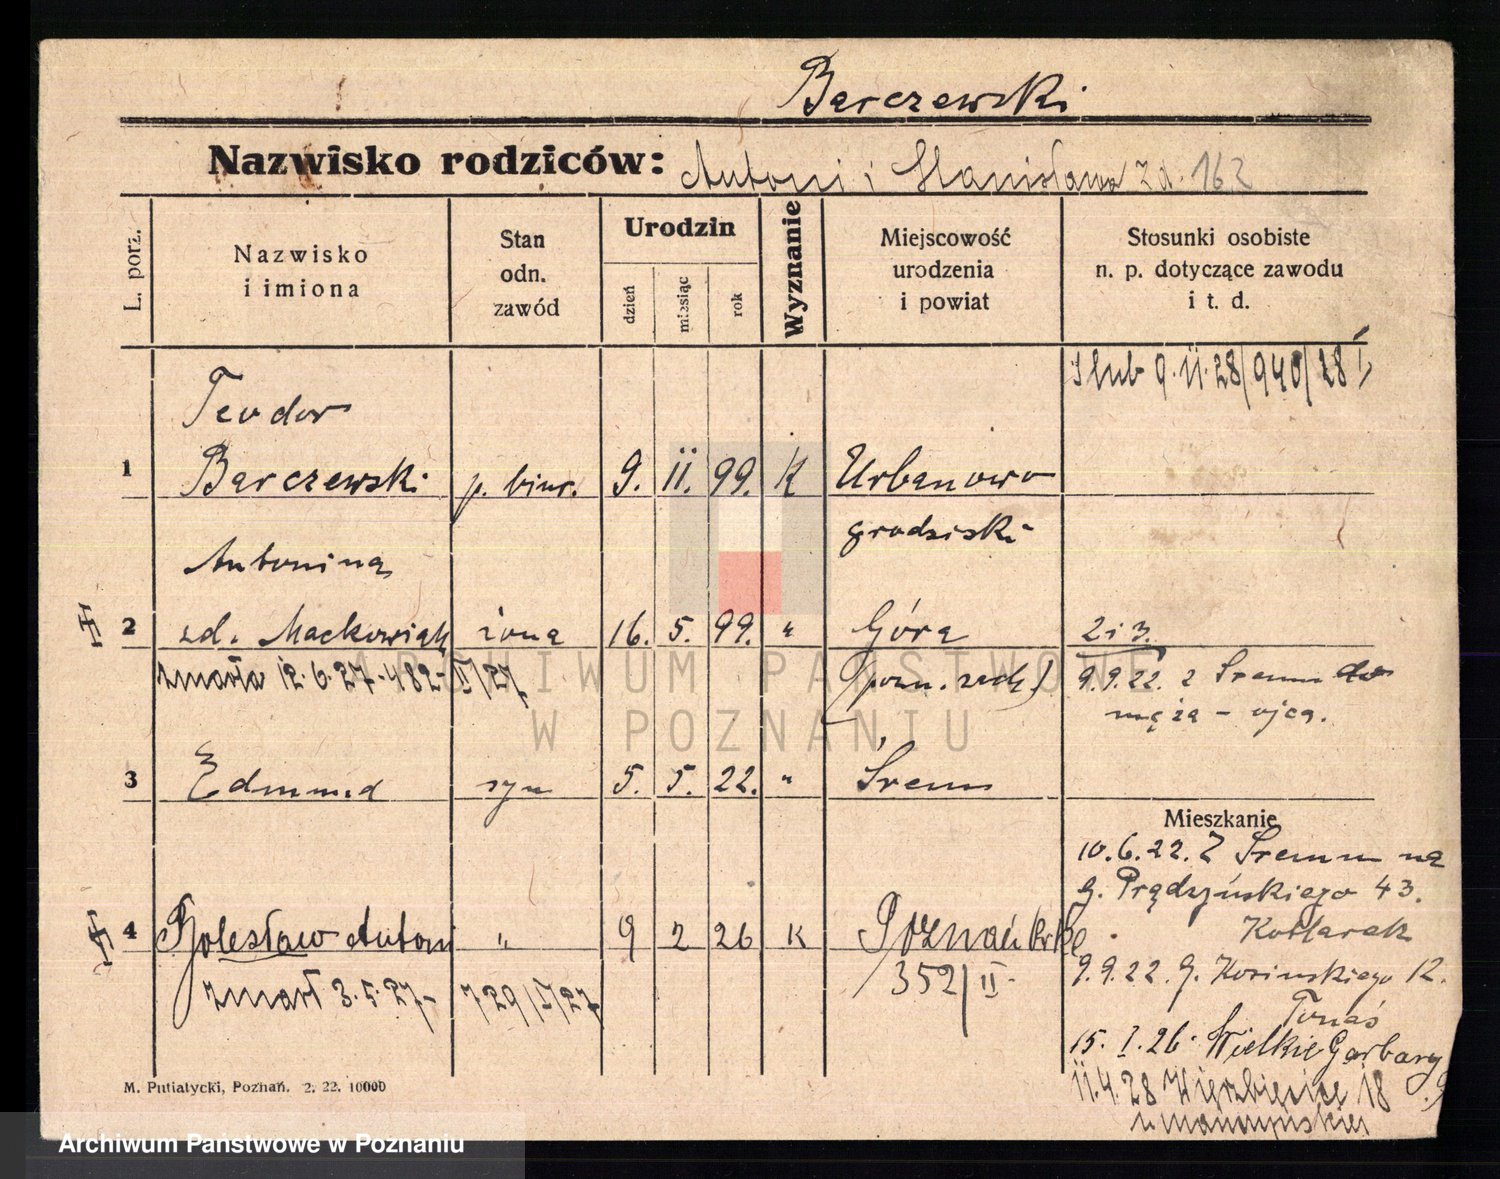 Barczewski
Nazwisko rodziców: Antoni i Stanisława zd. 162
L. porz.
Nazwisko
i imiona
Stan
odn.
zawód
Urodzin
dzień
miesiąc
rok
Wyznanie
Miejscowość
urodzenia
i powiat
Stosunki osobiste
n. p. dotyczące zawodu
i t. d.
ślub 9.II.28/940/28
Teodor
1 Barczewski p. biur. 9. II. 99. K Urbanowo
grodziski
Antonina
2 zd. Maćkowiak żona 16. 5. 99. " Góra 2 i 3.
zmarła 12.6.27-482-II/27 (pozn. zach.) 9.9.22. z Śremu do
męża - ojca.
3 Edmund syn 5. 5. 22. " Śrem
Mieszkanie
10.6.22. Z Śremu na
G. Prądzyńskiego 43.
Kotlarek
4 Bolesław Antoni " 9 2 26 K Poznań
zmarł 3.5.27- 729/I/27 352/II-
9.9.22. G. Kosinskiego 12.
Tomaś
15. I. 26. Wielkie Garbary 9
II.4.28 Wierzbięcice 18
M. Putiatycki, Poznań. 2. 22. 10000
ARCHIWUM PAŃSTWOWE
W POZNANIU
Archiwum Państwowe w Poznaniu